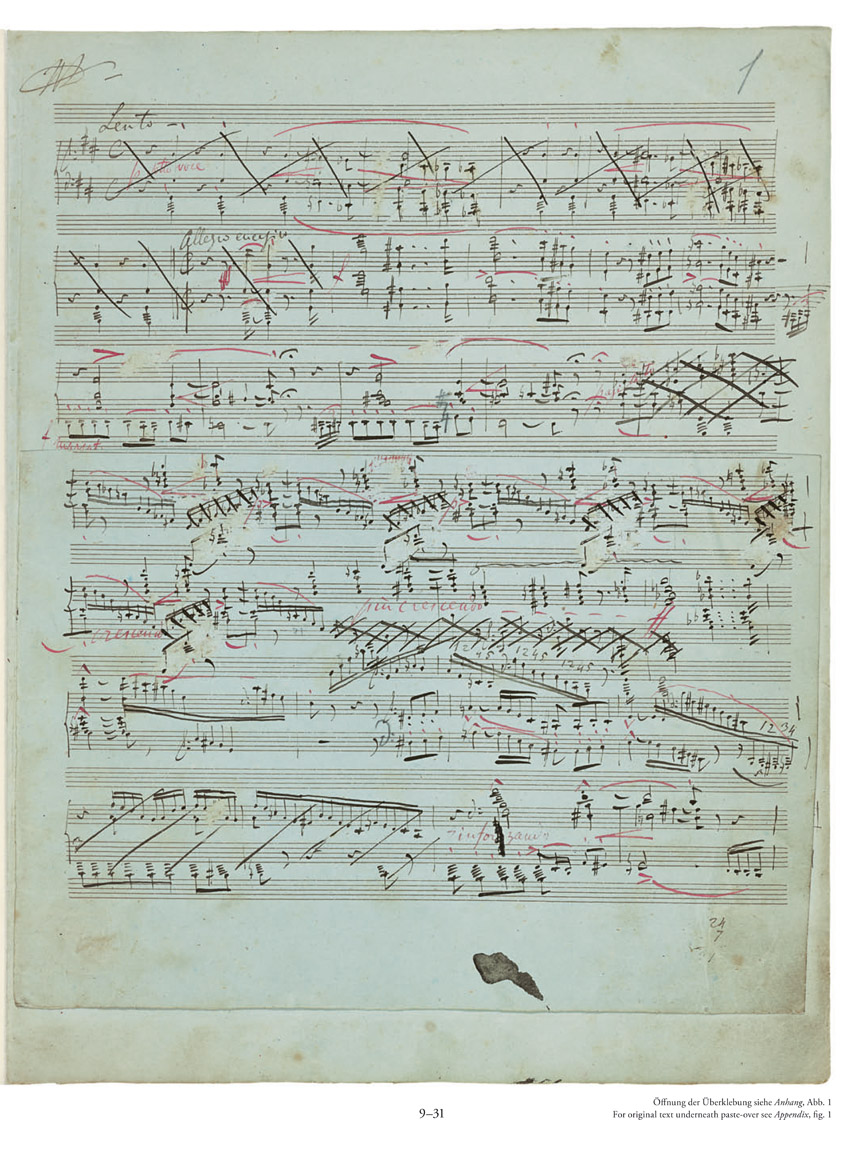 1
Lento
sotto voce
Allegro energico
marcat.
più crescendo
crescendo
1 2 4 5 1 2 4 5 1 2 4 5
1 2 3 4
rinforzando
24
7
9–31
Öffnung der Überklebung siehe Anhang, Abb. 1
For original text underneath paste-over see Appendix, fig. 1